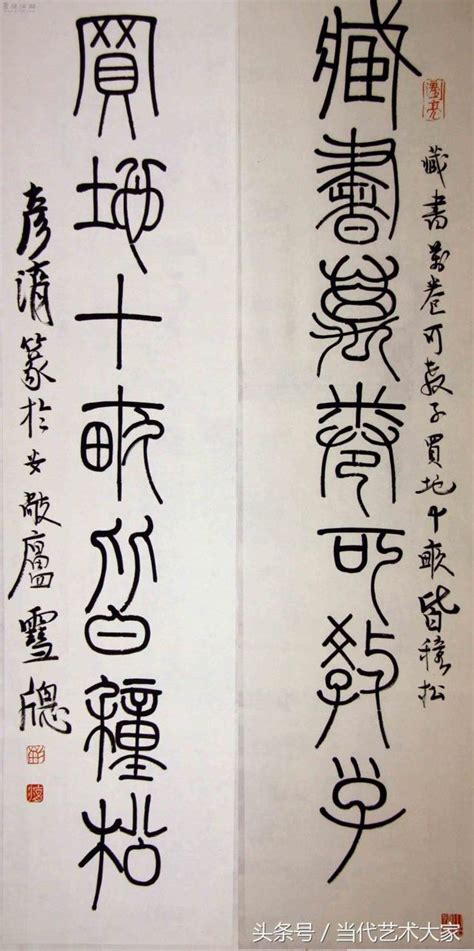 藏書萬卷可教子買地十畝皆種松
藏書萬卷可教子
買地十畝皆種松
篆於廬雪牕
头条号 / 当代艺术大家